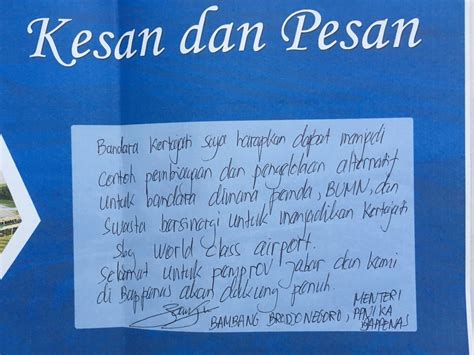 Kesan dan Pesan
Bandara Kertajati saya harapkan dapat menjadi
contoh pembiayaan dan pengelolaan alternatif
untuk bandara dimana pemda, BUMN, dan
Swasta bersinergi untuk menjadikan Kertajati
sbg world class airport.
Selamat untuk pemprov Jabar dan kami
di Bappenas akan dukung penuh.
BAMBANG BRODJONEGORO, MENTERI
PPN/KA
BAPPENAS